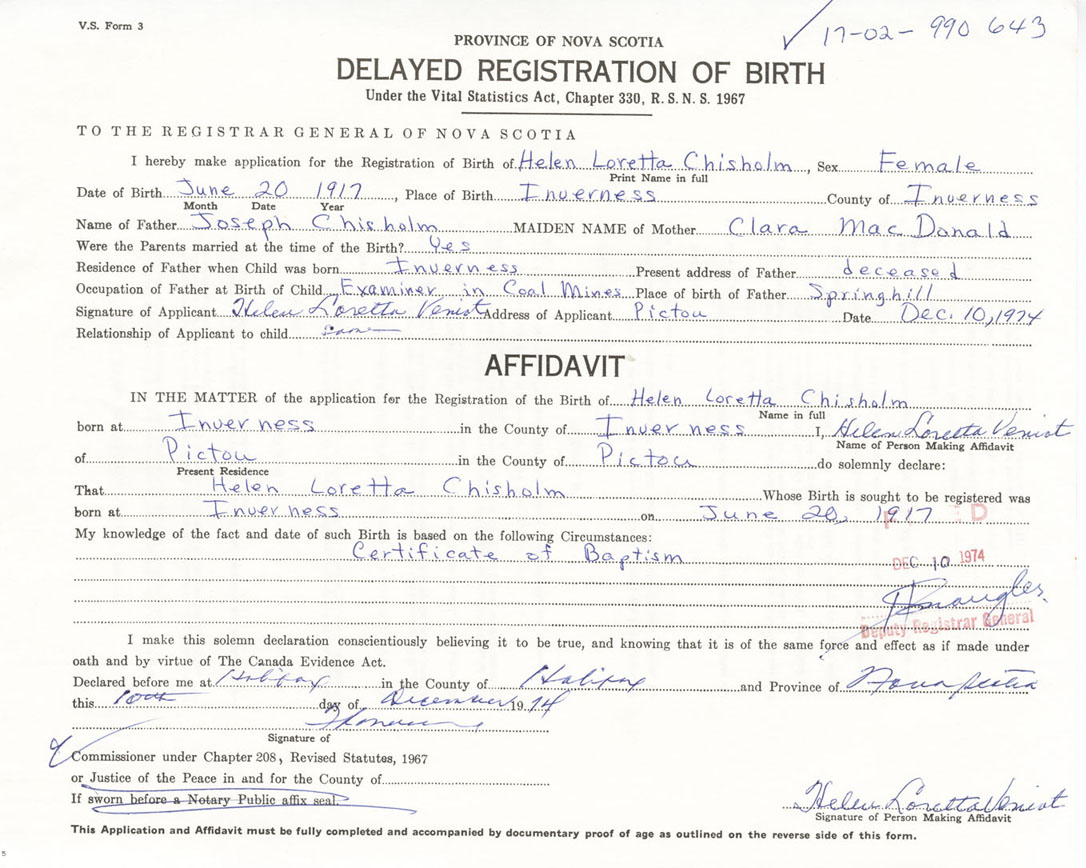 V.S. Form 3
✓ 17-02-990 643
PROVINCE OF NOVA SCOTIA
DELAYED REGISTRATION OF BIRTH
Under the Vital Statistics Act, Chapter 330, R. S. N. S. 1967
TO THE REGISTRAR GENERAL OF NOVA SCOTIA
I hereby make application for the Registration of Birth of Helen Loretta Chisholm, Sex Female
Print Name in full
Date of Birth June 20 1917, Place of Birth Inverness County of Inverness
Month Date Year
Name of Father Joseph Chisholm MAIDEN NAME of Mother Clara MacDonald
Were the Parents married at the time of the Birth? Yes
Residence of Father when Child was born Inverness Present address of Father deceased
Occupation of Father at Birth of Child Examiner in Coal Mines Place of birth of Father Springhill
Signature of Applicant Helen Loretta Veniot Address of Applicant Pictou Date Dec. 10, 1974
Relationship of Applicant to child same
AFFIDAVIT
IN THE MATTER of the application for the Registration of the Birth of Helen Loretta Chisholm
Name in full
born at Inverness in the County of Inverness I, Helen Loretta Veniot
Name of Person Making Affidavit
of Pictou in the County of Pictou do solemnly declare:
Present Residence
That Helen Loretta Chisholm Whose Birth is sought to be registered was
born at Inverness on June 20, 1917
My knowledge of the fact and date of such Birth is based on the following Circumstances:
Certificate of Baptism
DEC 10 1974
Deputy Registrar General
I make this solemn declaration conscientiously believing it to be true, and knowing that it is of the same force and effect as if made under
oath and by virtue of The Canada Evidence Act.
Declared before me at Halifax in the County of Halifax and Province of Nova Scotia
this 10th day of December 1974
Signature of
Commissioner under Chapter 208, Revised Statutes, 1967
or Justice of the Peace in and for the County of
If sworn before a Notary Public affix seal.
Helen Loretta Veniot
Signature of Person Making Affidavit
This Application and Affidavit must be fully completed and accompanied by documentary proof of age as outlined on the reverse side of this form.
5